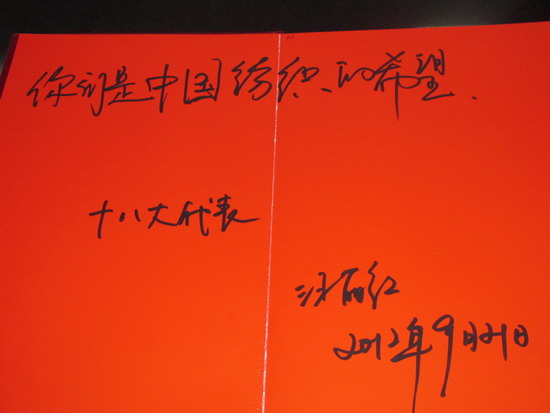 你们是中国纺织的希望.
十八大代表
汪丽红
2012年9月21日